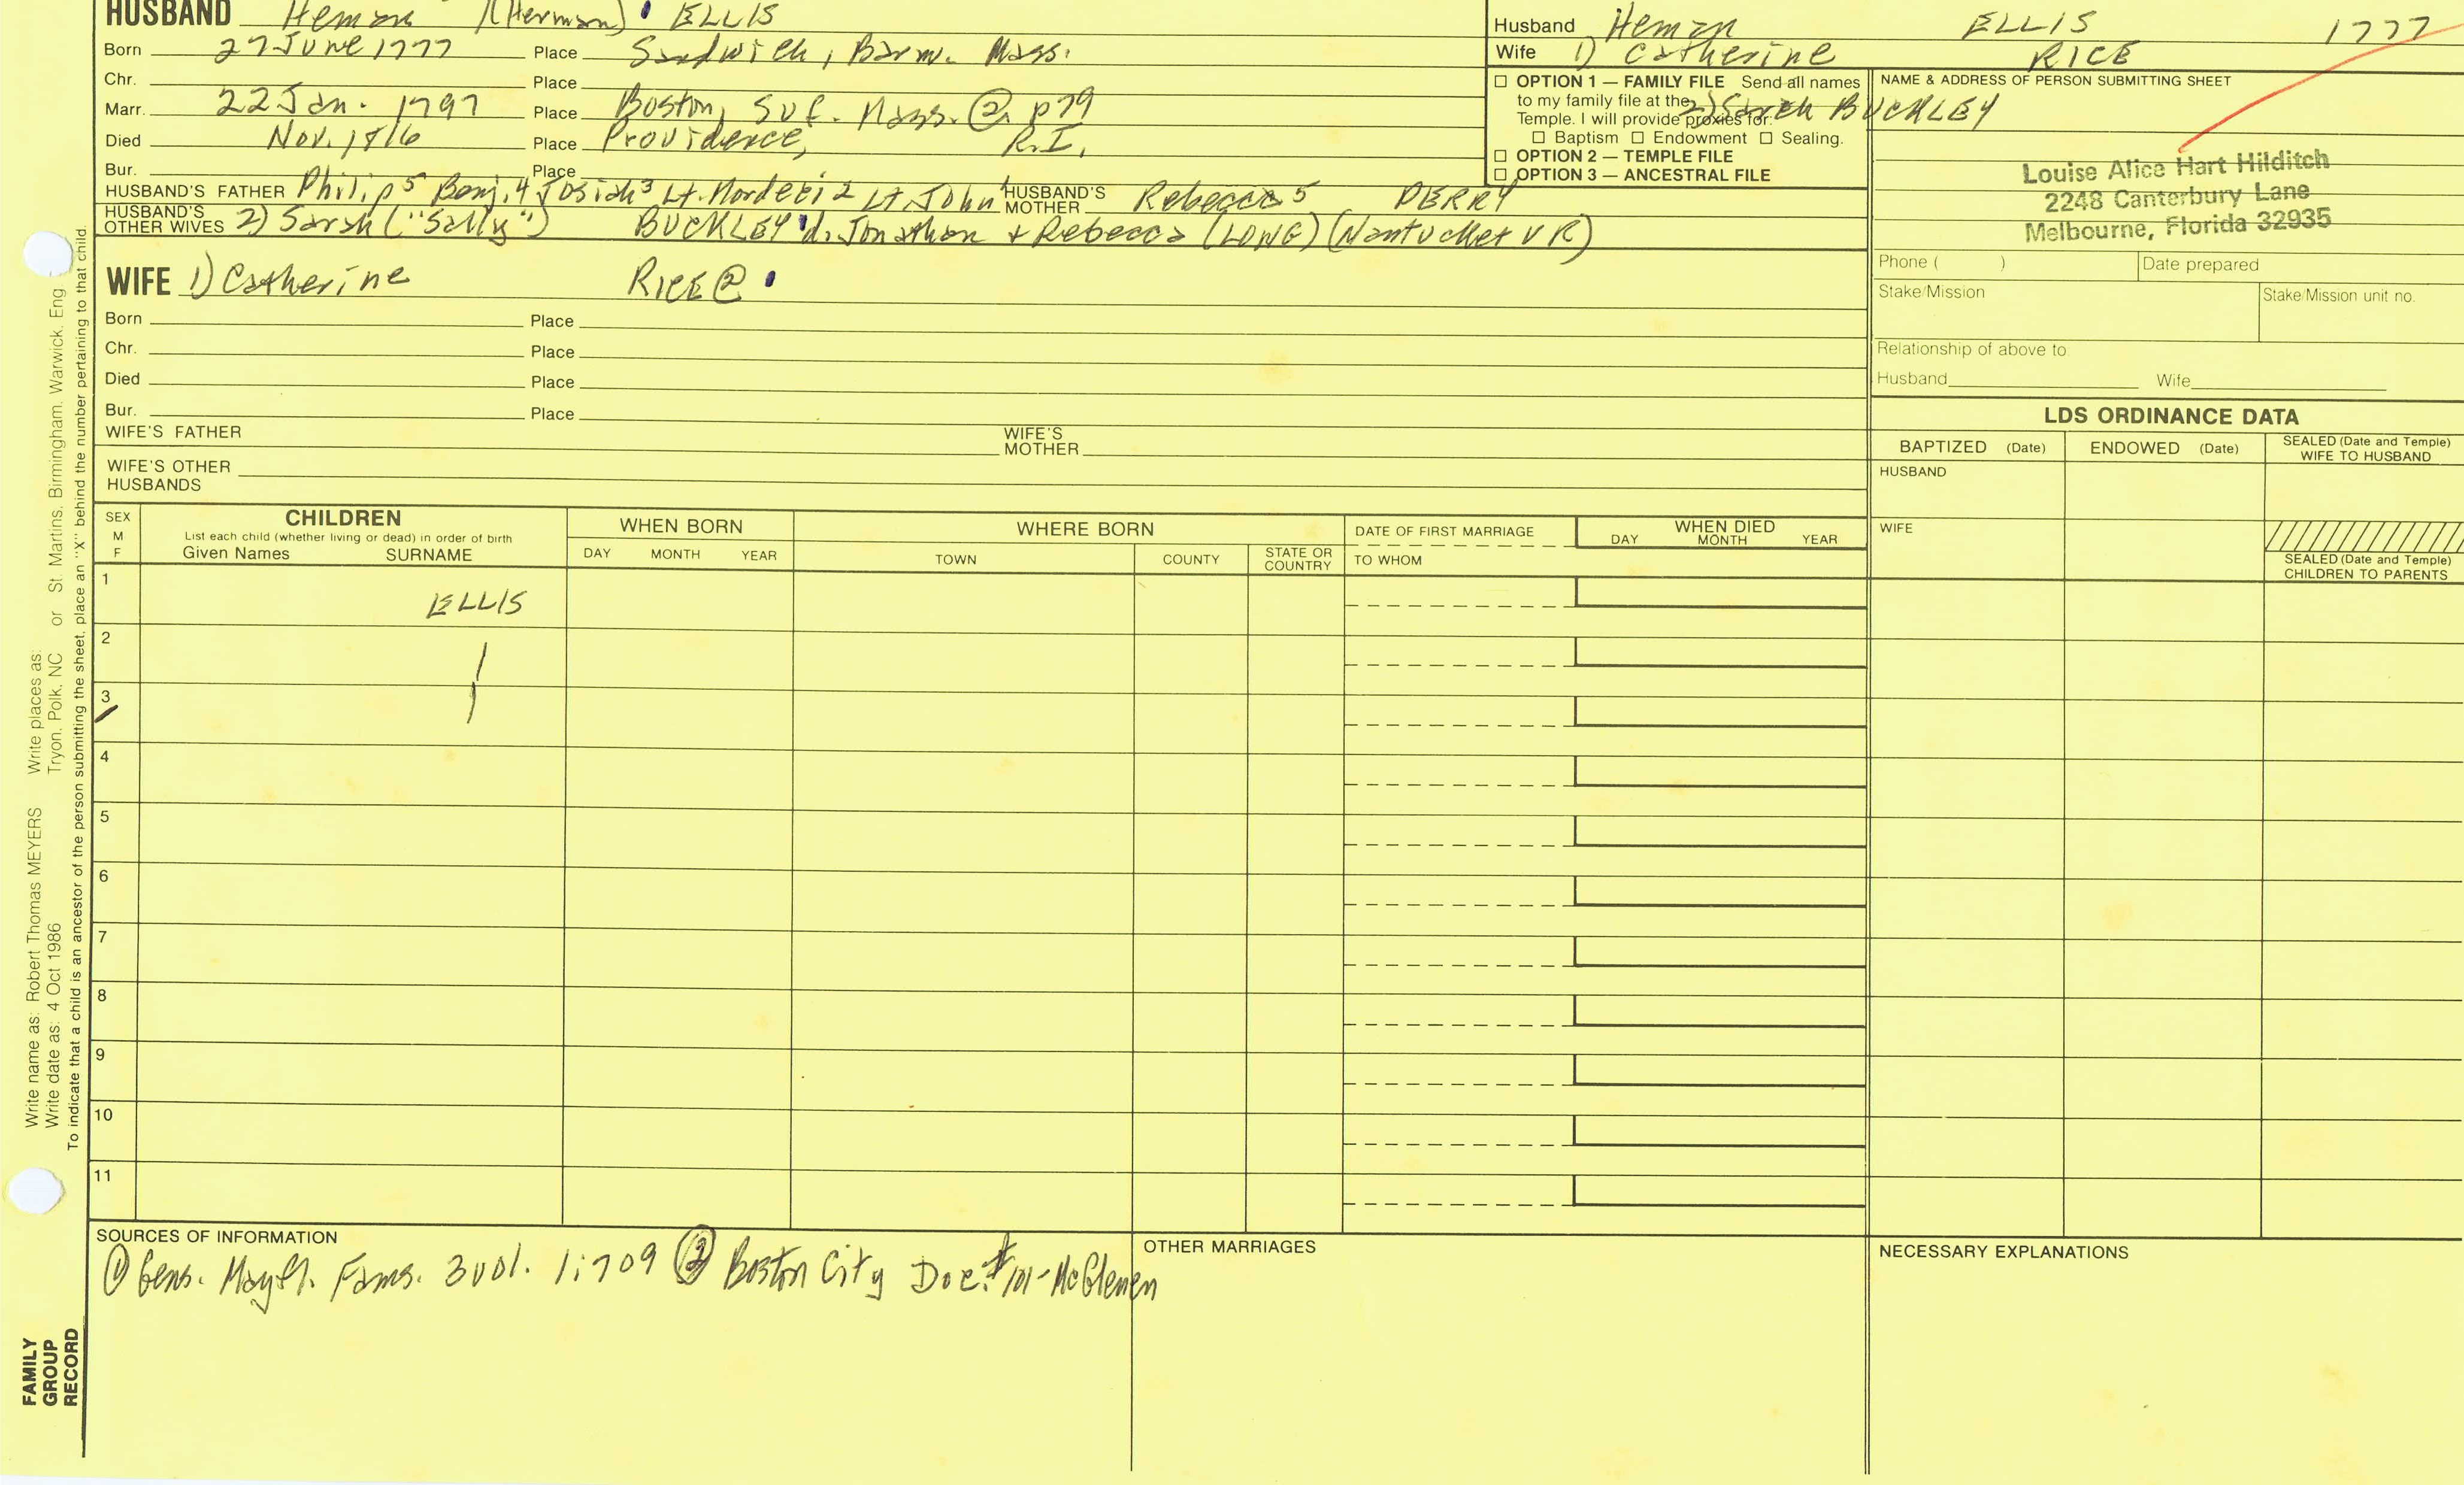 HUSBAND Heman (Herman) ELLIS
Born 27 June 1777 Place Sandwich, Barn. Mass.
Chr. Place
Marr. 22 Jan. 1797 Place Boston, Suf. Mass. ② p79
Died Nov. 1816 Place Providence, R.I.
Bur. Place
HUSBAND'S FATHER Philip⁵ Benj.⁴ Josiah³ Lt. Mordecai² Lt. John¹ HUSBAND'S MOTHER Rebecca 5 PERRY
HUSBAND'S OTHER WIVES 2) Sarah ("Sally") BUCKLEY d. Jonathan + Rebecca (LONG) (Nantucket VR)
WIFE 1) Catherine RICE ②
Born Place
Chr. Place
Died Place
Bur. Place
WIFE'S FATHER WIFE'S MOTHER
WIFE'S OTHER HUSBANDS
Husband Heman ELLIS 1777
Wife 1) Catherine RICE
2) Sarah BUCKLEY
☐ OPTION 1 — FAMILY FILE Send all names
to my family file at the
Temple. I will provide proxies for:
☐ Baptism ☐ Endowment ☐ Sealing.
☐ OPTION 2 — TEMPLE FILE
☐ OPTION 3 — ANCESTRAL FILE
NAME & ADDRESS OF PERSON SUBMITTING SHEET
Louise Alice Hart Hilditch
2248 Canterbury Lane
Melbourne, Florida 32935
Phone ( ) Date prepared
Stake/Mission Stake/Mission unit no.
Relationship of above to
Husband Wife
LDS ORDINANCE DATA
BAPTIZED (Date) ENDOWED (Date) SEALED (Date and Temple) WIFE TO HUSBAND
HUSBAND
WIFE
SEALED (Date and Temple)
CHILDREN TO PARENTS
SEX M F
CHILDREN
List each child (whether living or dead) in order of birth
Given Names SURNAME
WHEN BORN
DAY MONTH YEAR
WHERE BORN
TOWN COUNTY STATE OR COUNTRY
DATE OF FIRST MARRIAGE
TO WHOM
WHEN DIED
DAY MONTH YEAR
1 ELLIS
2
3
4
5
6
7
8
9
10
11
SOURCES OF INFORMATION
① Gens. Mayfl. Fams. 3 vol. 1:709 ② Boston City Doc. #101-McGlenen
OTHER MARRIAGES
NECESSARY EXPLANATIONS
Write name as: Robert Thomas MEYERS Write places as:
Write date as: 4 Oct 1986 Tryon, Polk, NC or St. Martins, Birmingham, Warwick, Eng
To indicate that a child is an ancestor of the person submitting the sheet, place an "X" behind the number pertaining to that child.
FAMILY
GROUP
RECORD